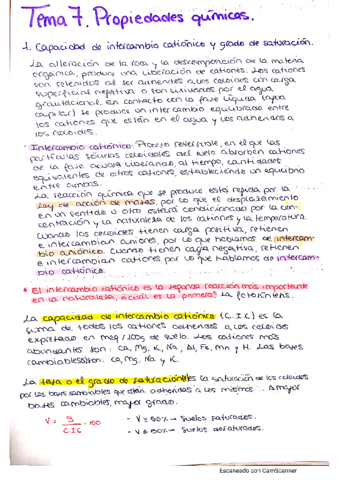 Tema 7. Propiedades químicas.
1. Capacidad de intercambio catiónico y grado de saturación.
La alteración de la roca y la descomposición de la materia
orgánica, produce una liberación de cationes. Los cationes
son retenidos al ser adheridos a los coloides con carga
superficial negativa o son lixiviados por el agua
gravitacional. En contacto con la fase líquida (agua
capilar) se produce un intercambio equilibrado entre
los cationes que están en el agua y los adheridos a
los coloides.
Intercambio catiónico: Proceso reversible, en el que las
partículas sólidas coloidales del suelo absorben cationes
de la fase acuosa liberando, al tiempo, cantidades
equivalentes de otros cationes, estableciendo un equilibrio
entre ambas.
La reacción química que se produce está regida por la
ley de acción de masas, por lo que el desplazamiento
en un sentido o otro estará condicionado por la con-
centración y la naturaleza de los cationes y la temperatura.
Cuando los coloides tienen carga positiva, retienen
e intercambian aniones, por lo que hablamos de intercam-
bio aniónico. Cuando tienen carga negativa, retienen
e intercambian cationes, por lo que hablamos de intercam-
bio catiónico.
* El intercambio catiónico es la segunda reacción más importante
en la naturaleza, ¿cuál es la primera? La fotosíntesis.
La capacidad de intercambio catiónico (C.I.C) es la
suma de todos los cationes adheridos a los coloides
expresado en meq/100g de suelo. Los cationes más
abundantes son: Ca, Mg, K, Na, Al, Fe, Mn y H. Las bases
cambiables son: Ca, Mg, Na y K.
La tasa o el grado de saturación es la saturación de los coloides
por las bases cambiables que están adheridas a los mismos ∴ A mayor
bases cambiables, mayor grado.
V = S / C.I.C · 100
- V ≥ 50% → Suelos saturados.
- V ≤ 50% → Suelos desaturados.
Escaneado con CamScanner